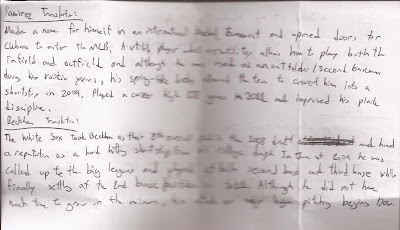 Ramirez Translation:
Made a name for himself in an international baseball tournament and opened doors for
Cubans to enter the MLB. A utility player whose versatility allows him to play both the
infield and outfield and although he was used as an outfielder/second baseman
during his rookie years, his spring-like body allowed the team to convert him into a
shortstop in 2009. Played a career high in and improved his plate
discipline.
Beckham Translation:
The White Sox took Beckham as their 8th overall pick in the 2008 draft and had
a reputation as a hard hitting shortstop from his college days. In June of 2009 he was
called up to the big leagues and played at both second base and third base while
finally settling at the 2nd base position in Although he did not have
much time to grow in the minors, his pitching begins now.